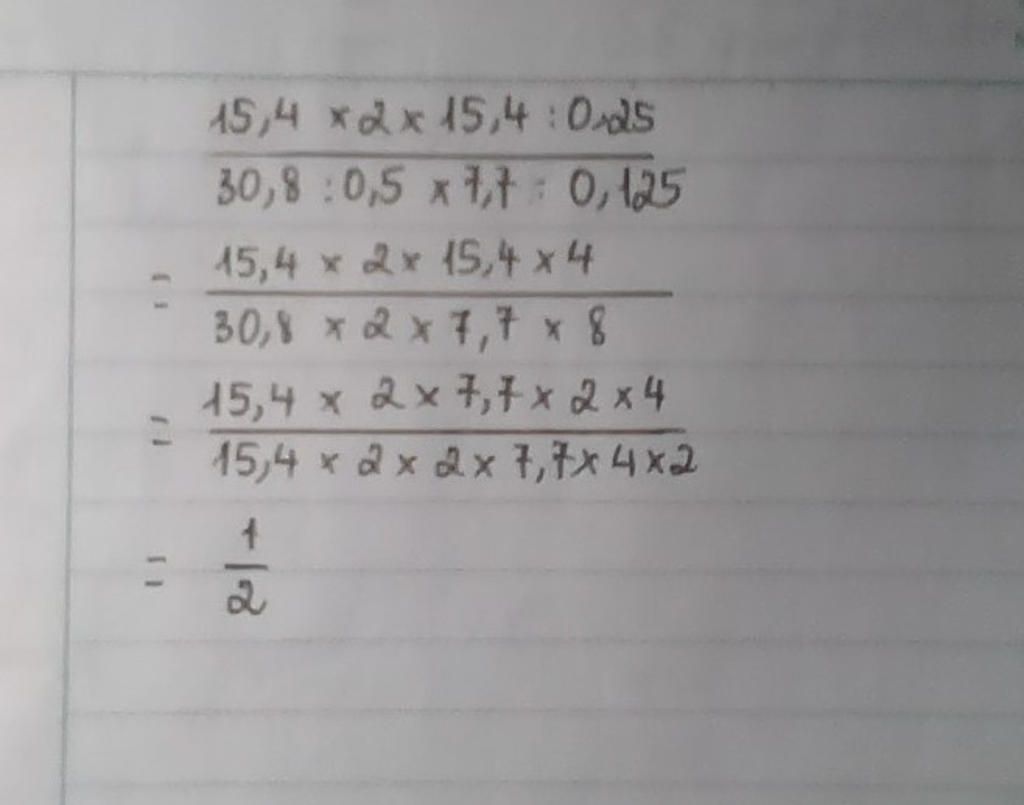 15,4 × 2 × 15,4 : 0,25
30,8 : 0,5 × 7,7 : 0,125
= 15,4 × 2 × 15,4 × 4
30,8 × 2 × 7,7 × 8
= 15,4 × 2 × 7,7 × 2 × 4
15,4 × 2 × 2 × 7,7 × 4 × 2
= 1
2